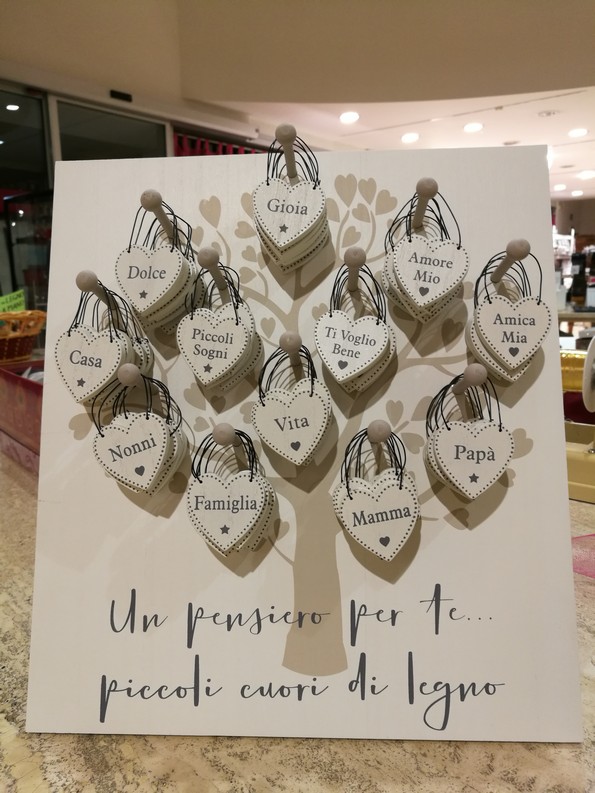 Gioia
Dolce
Amore
Mio
Casa
Piccoli
Sogni
Ti Voglio
Bene
Amica
Mia
Nonni
Vita
Papà
Famiglia
Mamma
Un pensiero per te...
piccoli cuori di legno